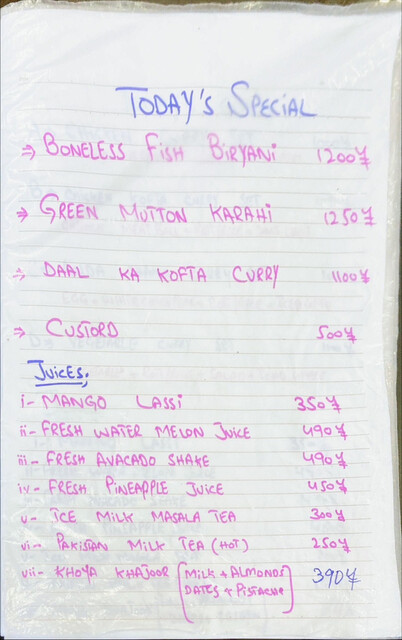 TODAY'S SPECIAL
⇒ BONELESS FISH BIRYANI 1200¥
⇒ GREEN MUTTON KARAHI 1250¥
⇒ DAAL KA KOFTA CURRY 1100¥
⇒ CUSTORD 500¥
JUICES;
i- MANGO LASSI 350¥
ii- FRESH WATER MELON JUICE 490¥
iii- FRESH AVACADO SHAKE 490¥
iv- FRESH PINEAPPLE JUICE 450¥
v- ICE MILK MASALA TEA 300¥
vi- PAKISTAN MILK TEA (HOT) 250¥
vii- KHOYA KHAJOOR [MILK + ALMONDS 390¥
DATES + PISTACHE]